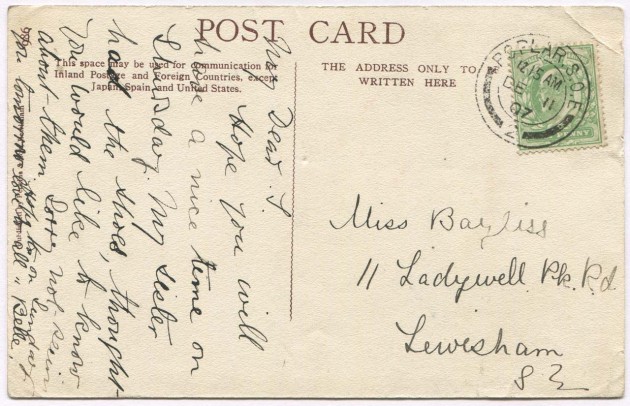 POST CARD
This space may be used for communication for
Inland Postage and Foreign Countries, except
Japan, Spain and United States.
THE ADDRESS ONLY TO
WRITTEN HERE
POPLAR. S.O. E.
12.15 AM
DE 11
07
2
My Dear. S
Hope you will
have a nice time on
Saturday. My sister
had the shoes, thought
You would like to know
about them Sorry not seeing
you tomorrow hope to on Sunday
love to all " Belle,
Miss Bayliss
11 Ladywell. Pk. Rd
Lewisham
S E